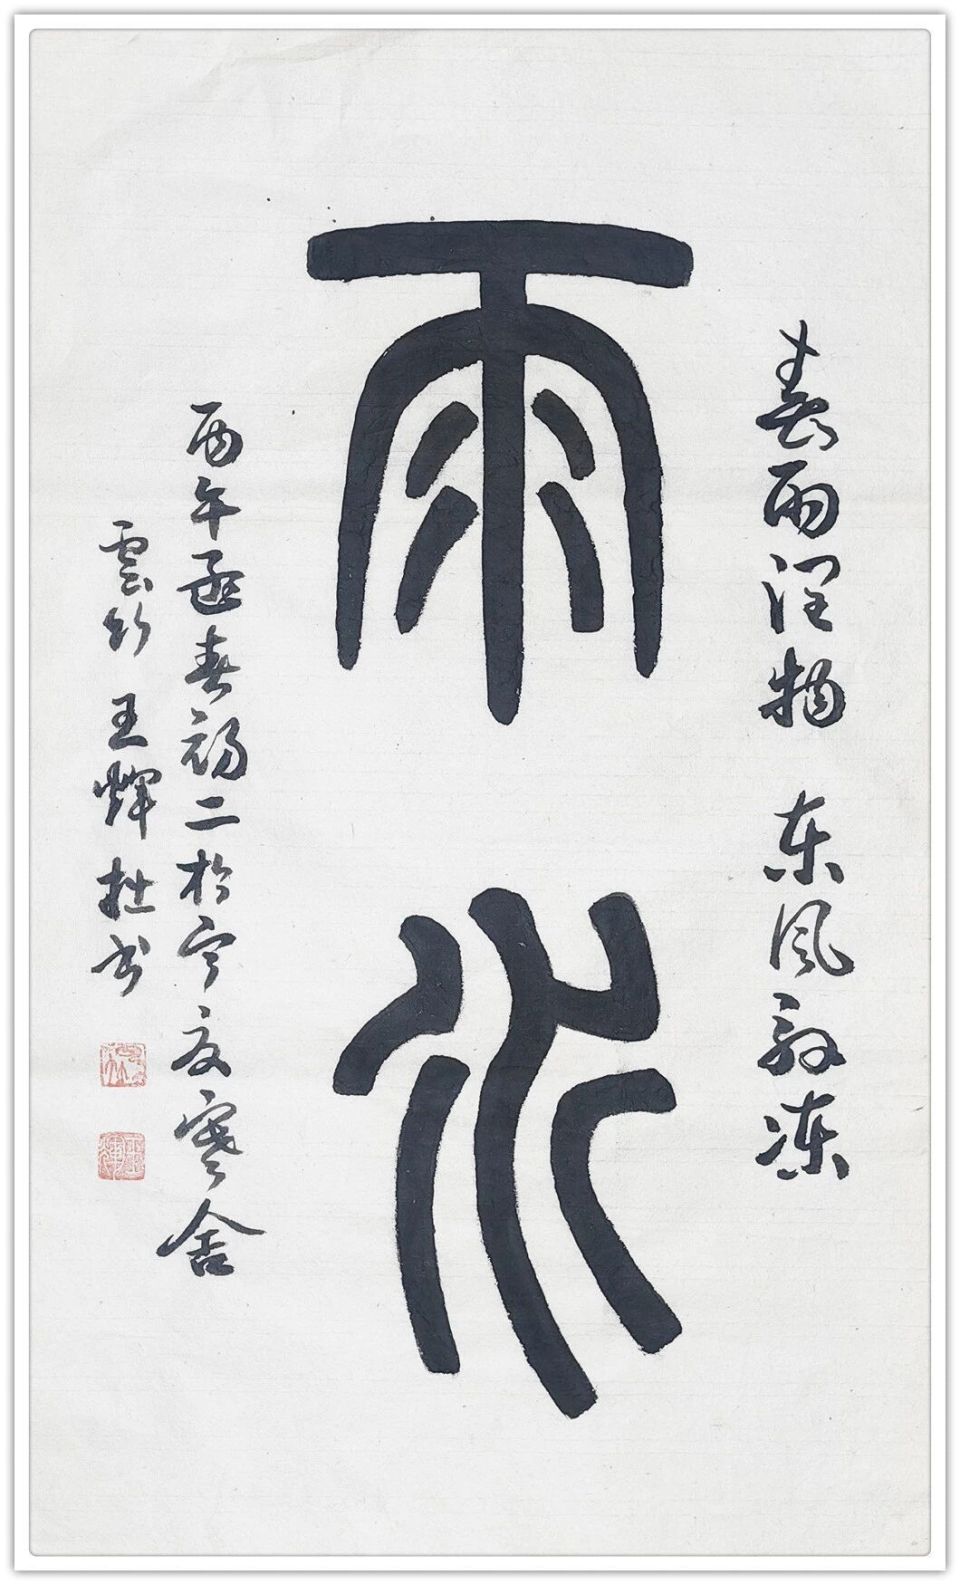 春雨润物 东风解冻
雨水
丙午春初二於宁夏寒舍
雲竹 王煇拙书